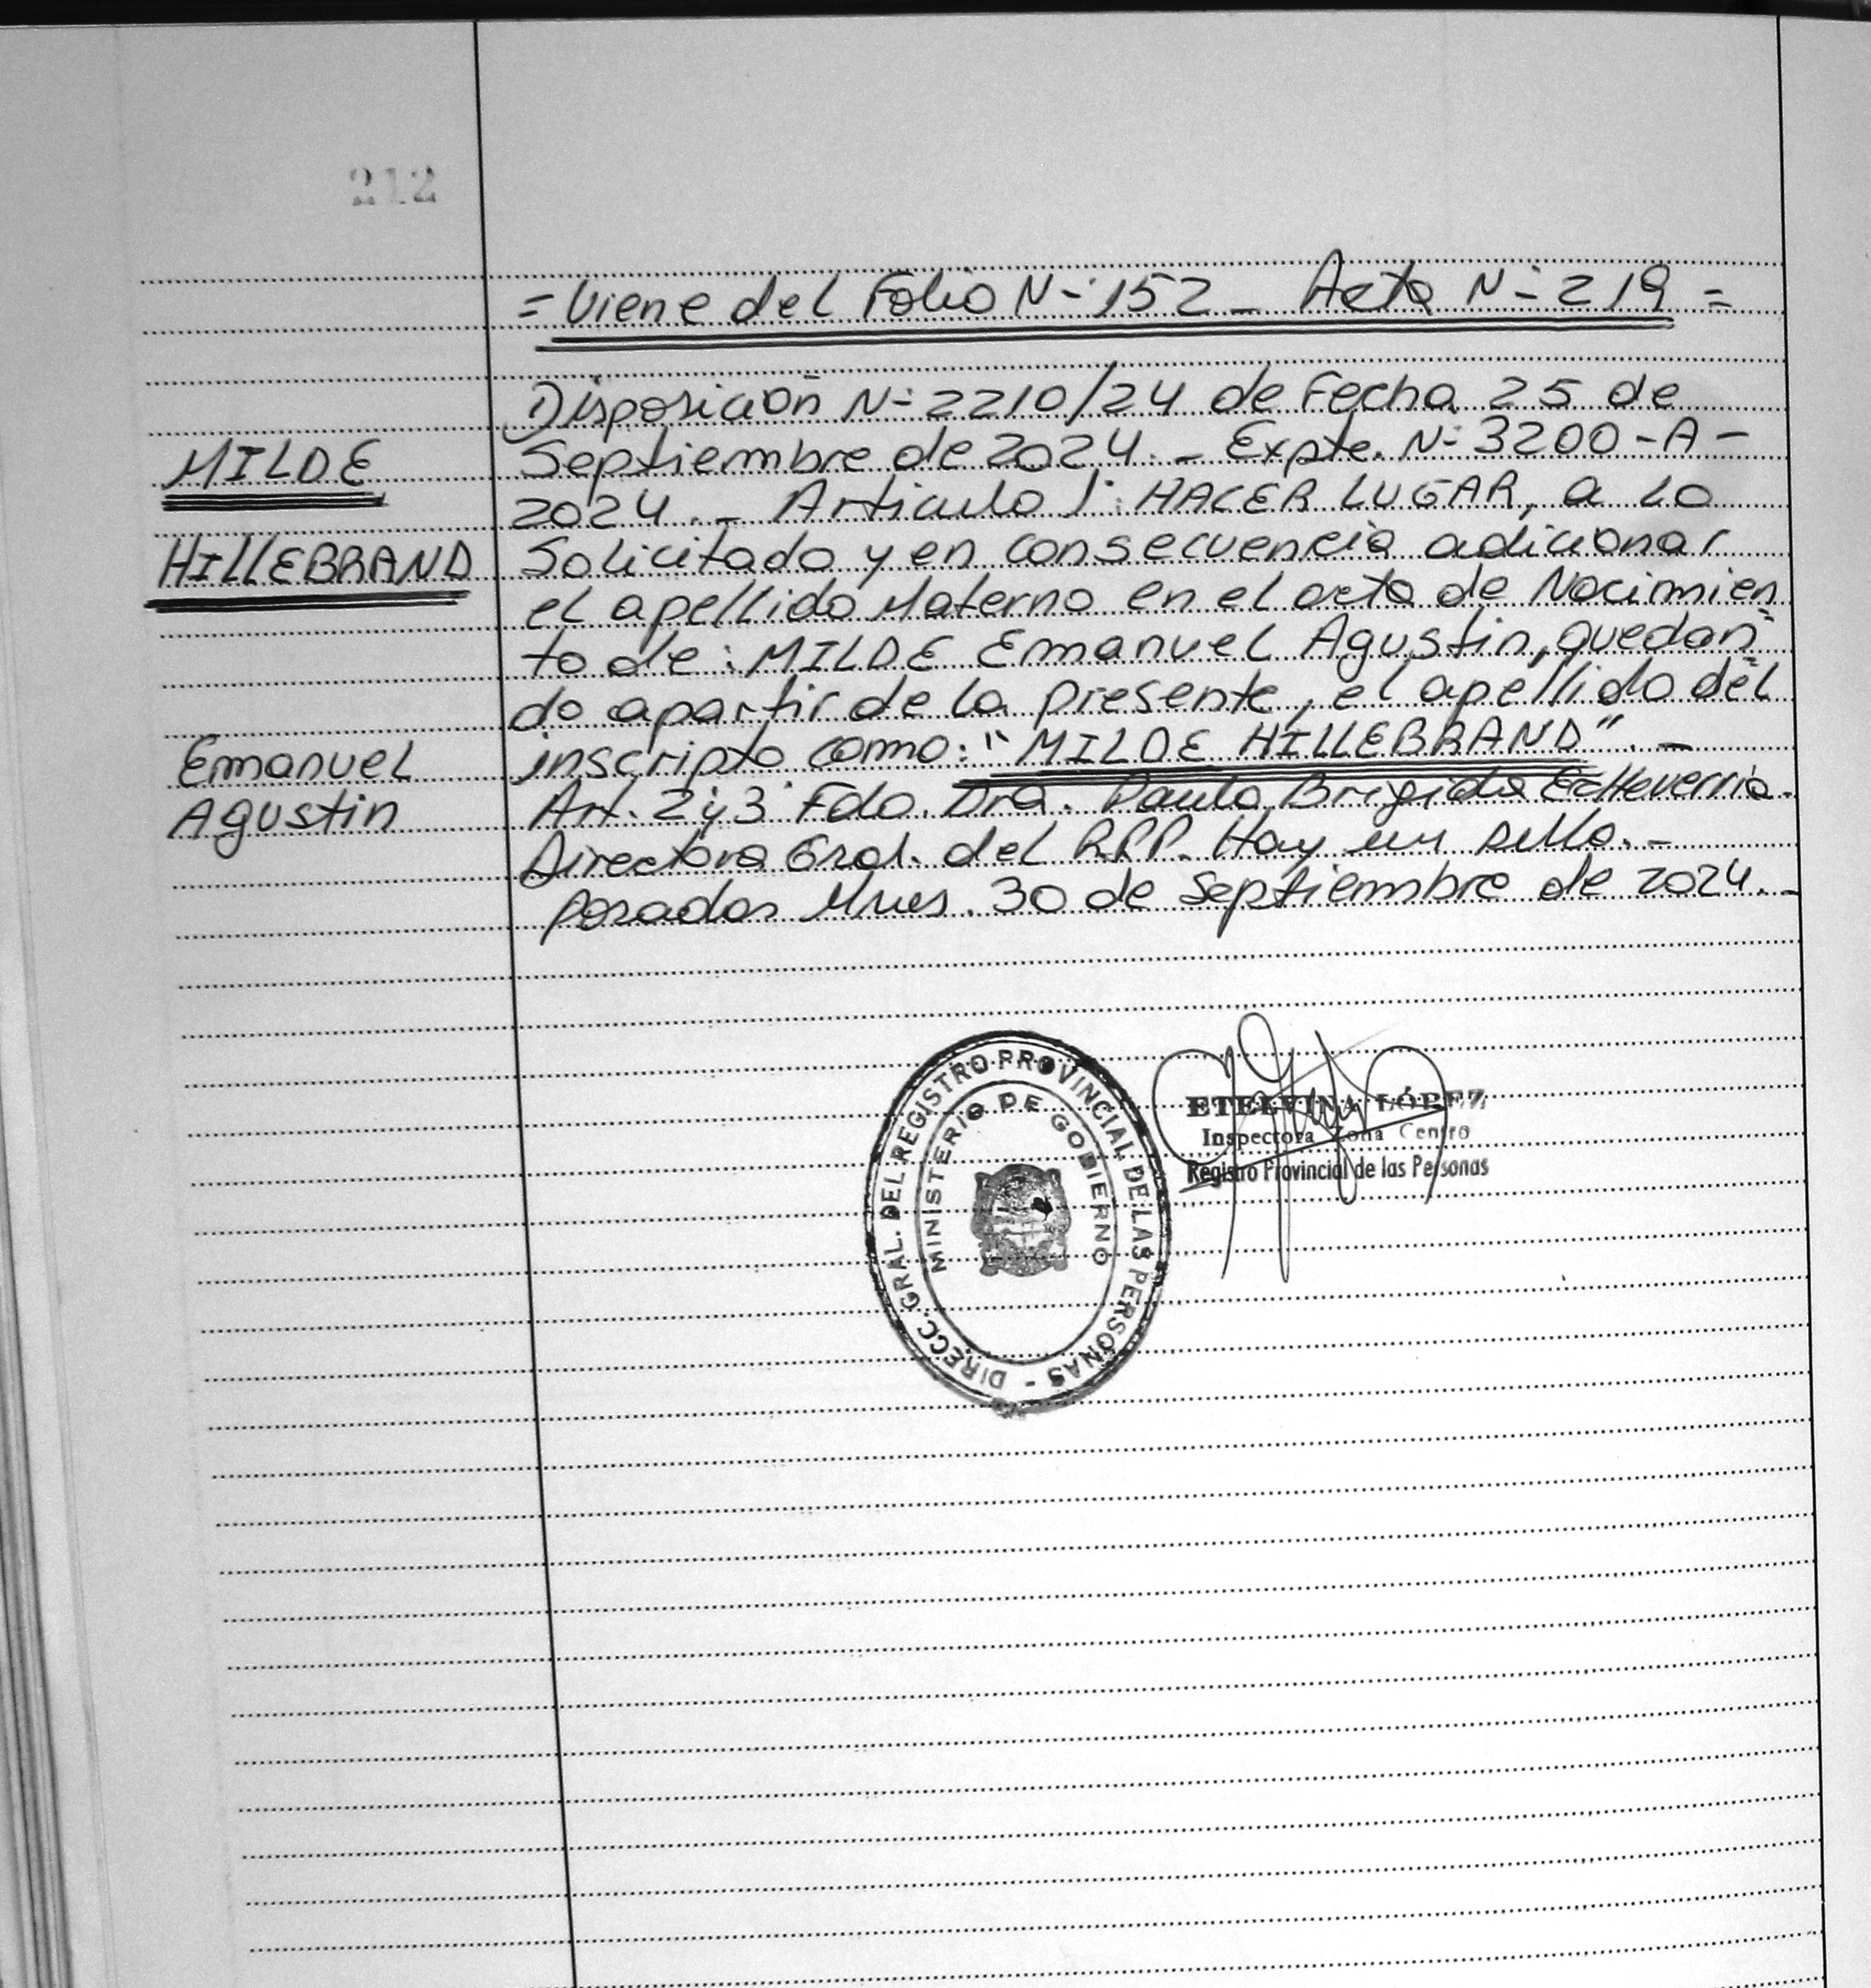 212
= Viene del Folio N-° 152 - Acta N-° 219 =
Disposición N-° 2210/24 de Fecha 25 de
Septiembre de 2024. - Expte. N-° 3200 - A -
2024. - Articulo 1°: HACER LUGAR, a lo
Solicitado y en consecuencia adicionar
el apellido Materno en el acta de Nacimien
to de: MILDE Emanuel Agustin, quedan
do apartir de la presente, el apellido del
inscripto como: "MILDE HILLEBRAND". -
Art. 2 y 3° Fdo. Dra. Paula Brigida Echeverria.
Directora Gral. del RPP. Hay un sello. -
Posadas Mnes. 30 de Septiembre de 2024. -
MILDE
HILLEBRAND
Emanuel
Agustin
DIRECC. GRAL. DEL REGISTRO PROVINCIAL DE LAS PERSONAS -
MINISTERIO DE GOBIERNO
ETELVINA LÓPEZ
Inspectora Zona Centro
Registro Provincial de las Personas